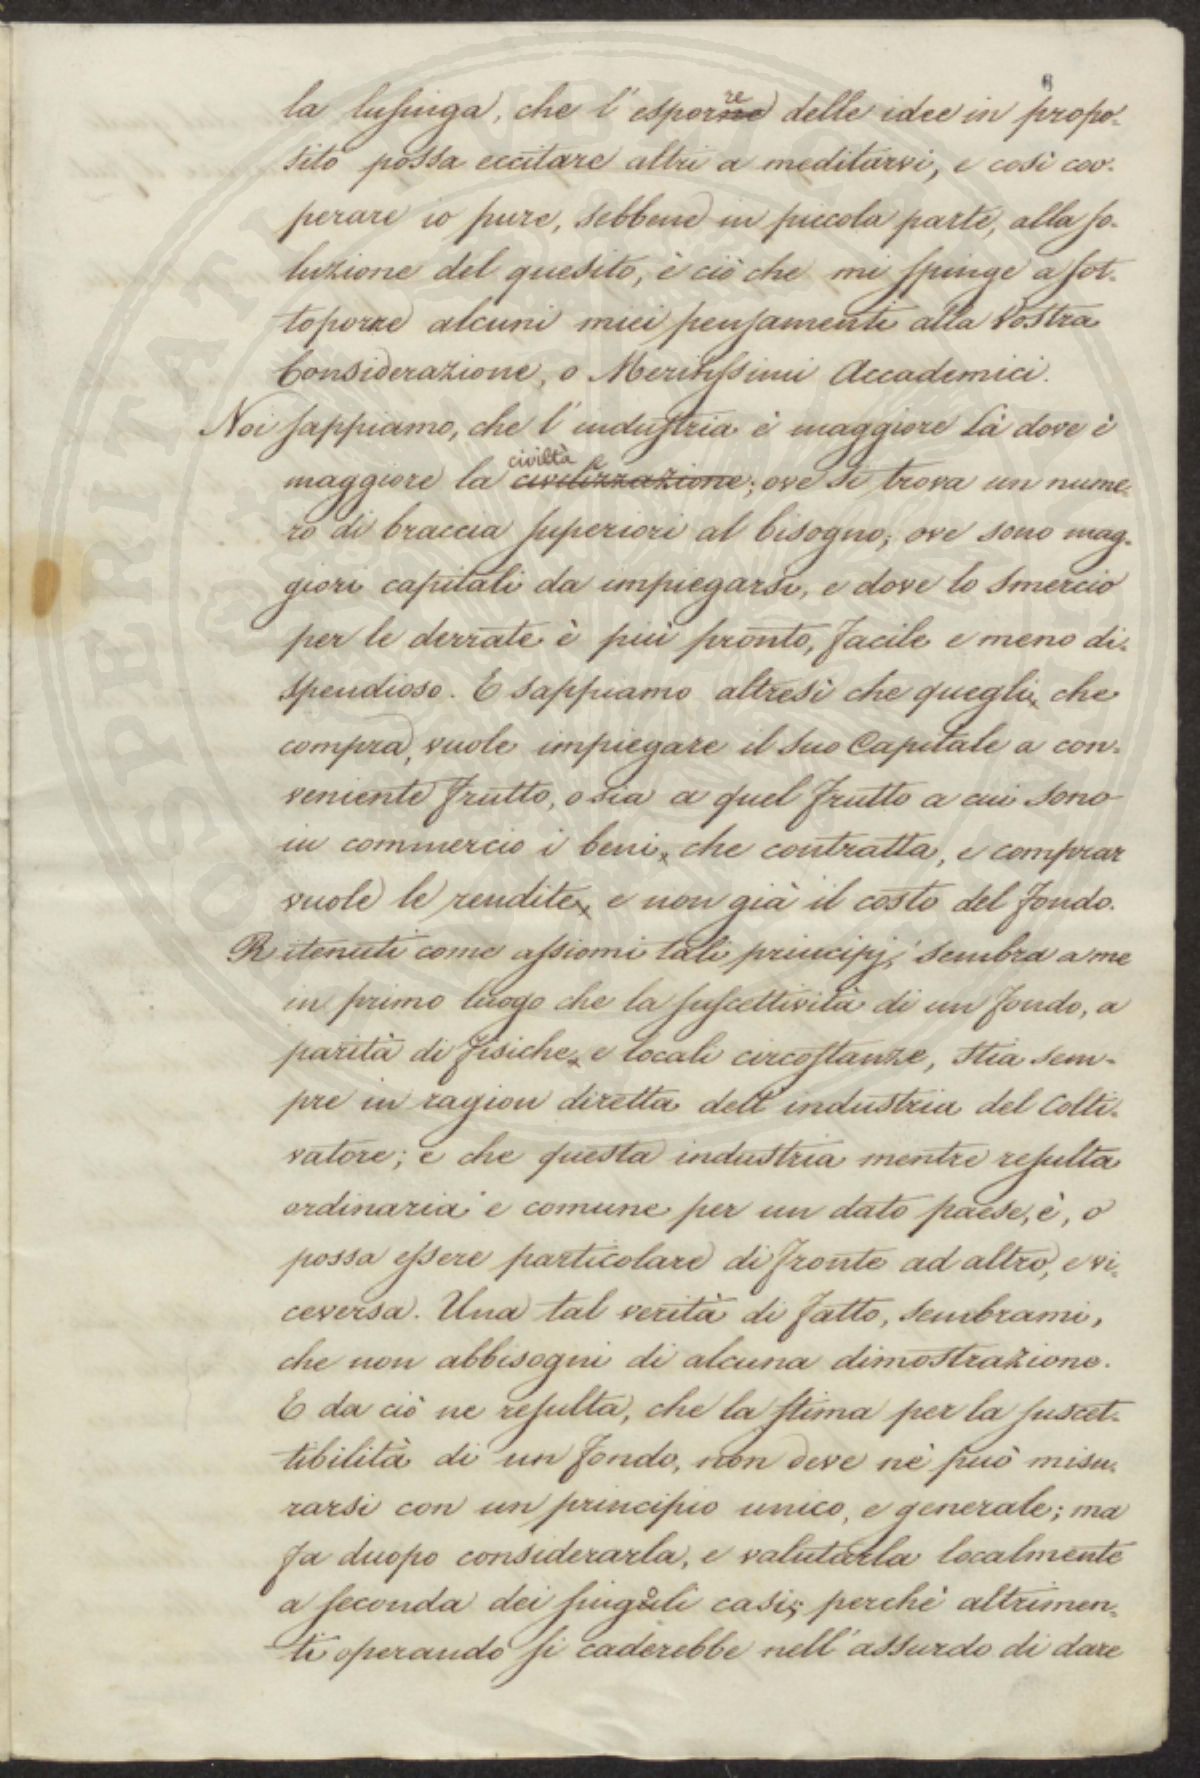 la lusinga, che l'esporre delle idee in propo-
sito possa eccitare altri a meditarvi, e così coo-
perare io pure, sebbene in piccola parte, alla so-
luzione del quesito, è ciò che mi spinge a sot-
toporre alcuni miei pensamenti alla Vostra
Considerazione, o Meritissimi Accademici.
Noi sappiamo, che l'industria è maggiore là dove è
civiltà
maggiore la civilizzazione; ove si trova un nume-
ro di braccia superiori al bisogno; ove sono mag-
giori capitali da impiegarsi, e dove lo smercio
per le derrate è più pronto, facile e meno di-
spendioso. E sappiamo altresì che quegli che
compra, vuole impiegare il suo Capitale a con-
veniente frutto, o sia a quel frutto a cui sono
in commercio i beni, che contratta, e comprar
vuole le rendite, e non già il costo del fondo.
Ritenuti come assiomi tali principj, sembra a me
in primo luogo che la suscettività di un fondo, a
parità di fisiche, e locali circostanze, stia sem-
pre in ragion diretta dell'industria del Colti-
vatore; e che questa industria mentre resulta
ordinaria e comune per un dato paese, è, o
possa essere particolare di fronte ad altro, e vi-
ceversa. Una tal verità di fatto, sembrami,
che non abbisogni di alcuna dimostrazione.
E da ciò ne resulta, che la stima per la suscet-
tibilità di un fondo, non deve nè può misu-
rarsi con un principio unico, e generale; ma
fa duopo considerarla, e valutarla localmente
a seconda dei singoli casi; perchè altrimen-
ti operando si caderebbe nell'assurdo di dare